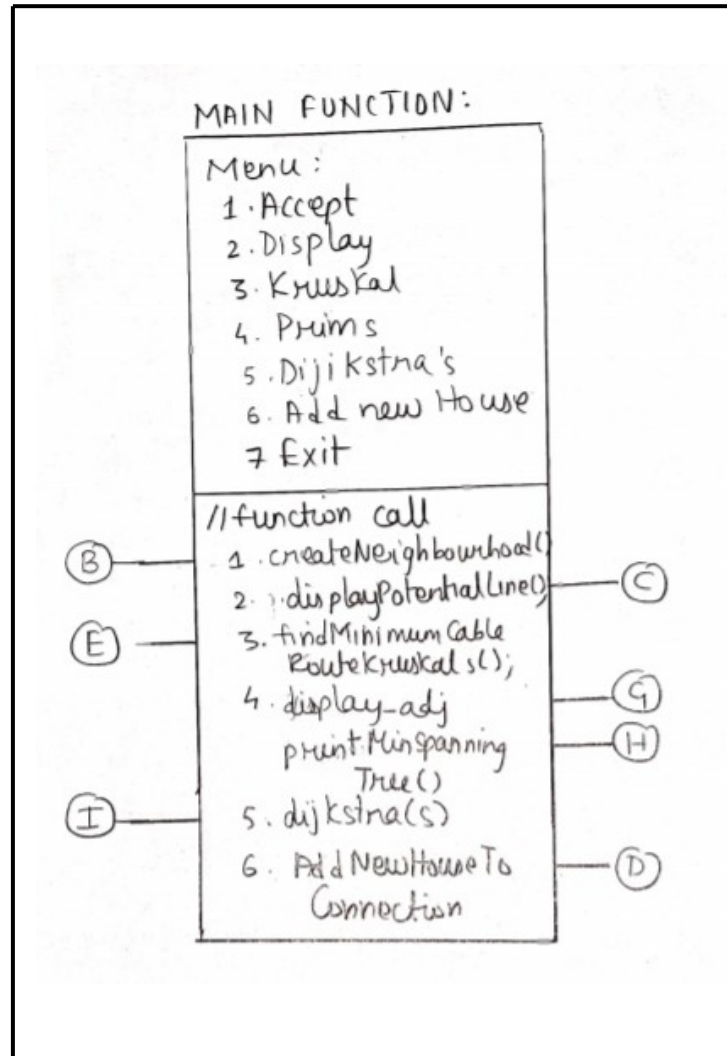 MAIN FUNCTION:
Menu:
1. Accept
2. Display
3. Kruskal
4. Prims
5. Dijikstra's
6. Add new House
7 Exit
//function call
B
1. createNeighbourhood()
2. displayPotentialLine();
C
E
3. findMinimumCable
RouteKruskals();
4. display_adj
G
printMinSpanning
H
Tree()
I
5. dijkstra(s)
6. AddNewHouseTo
D
Connection